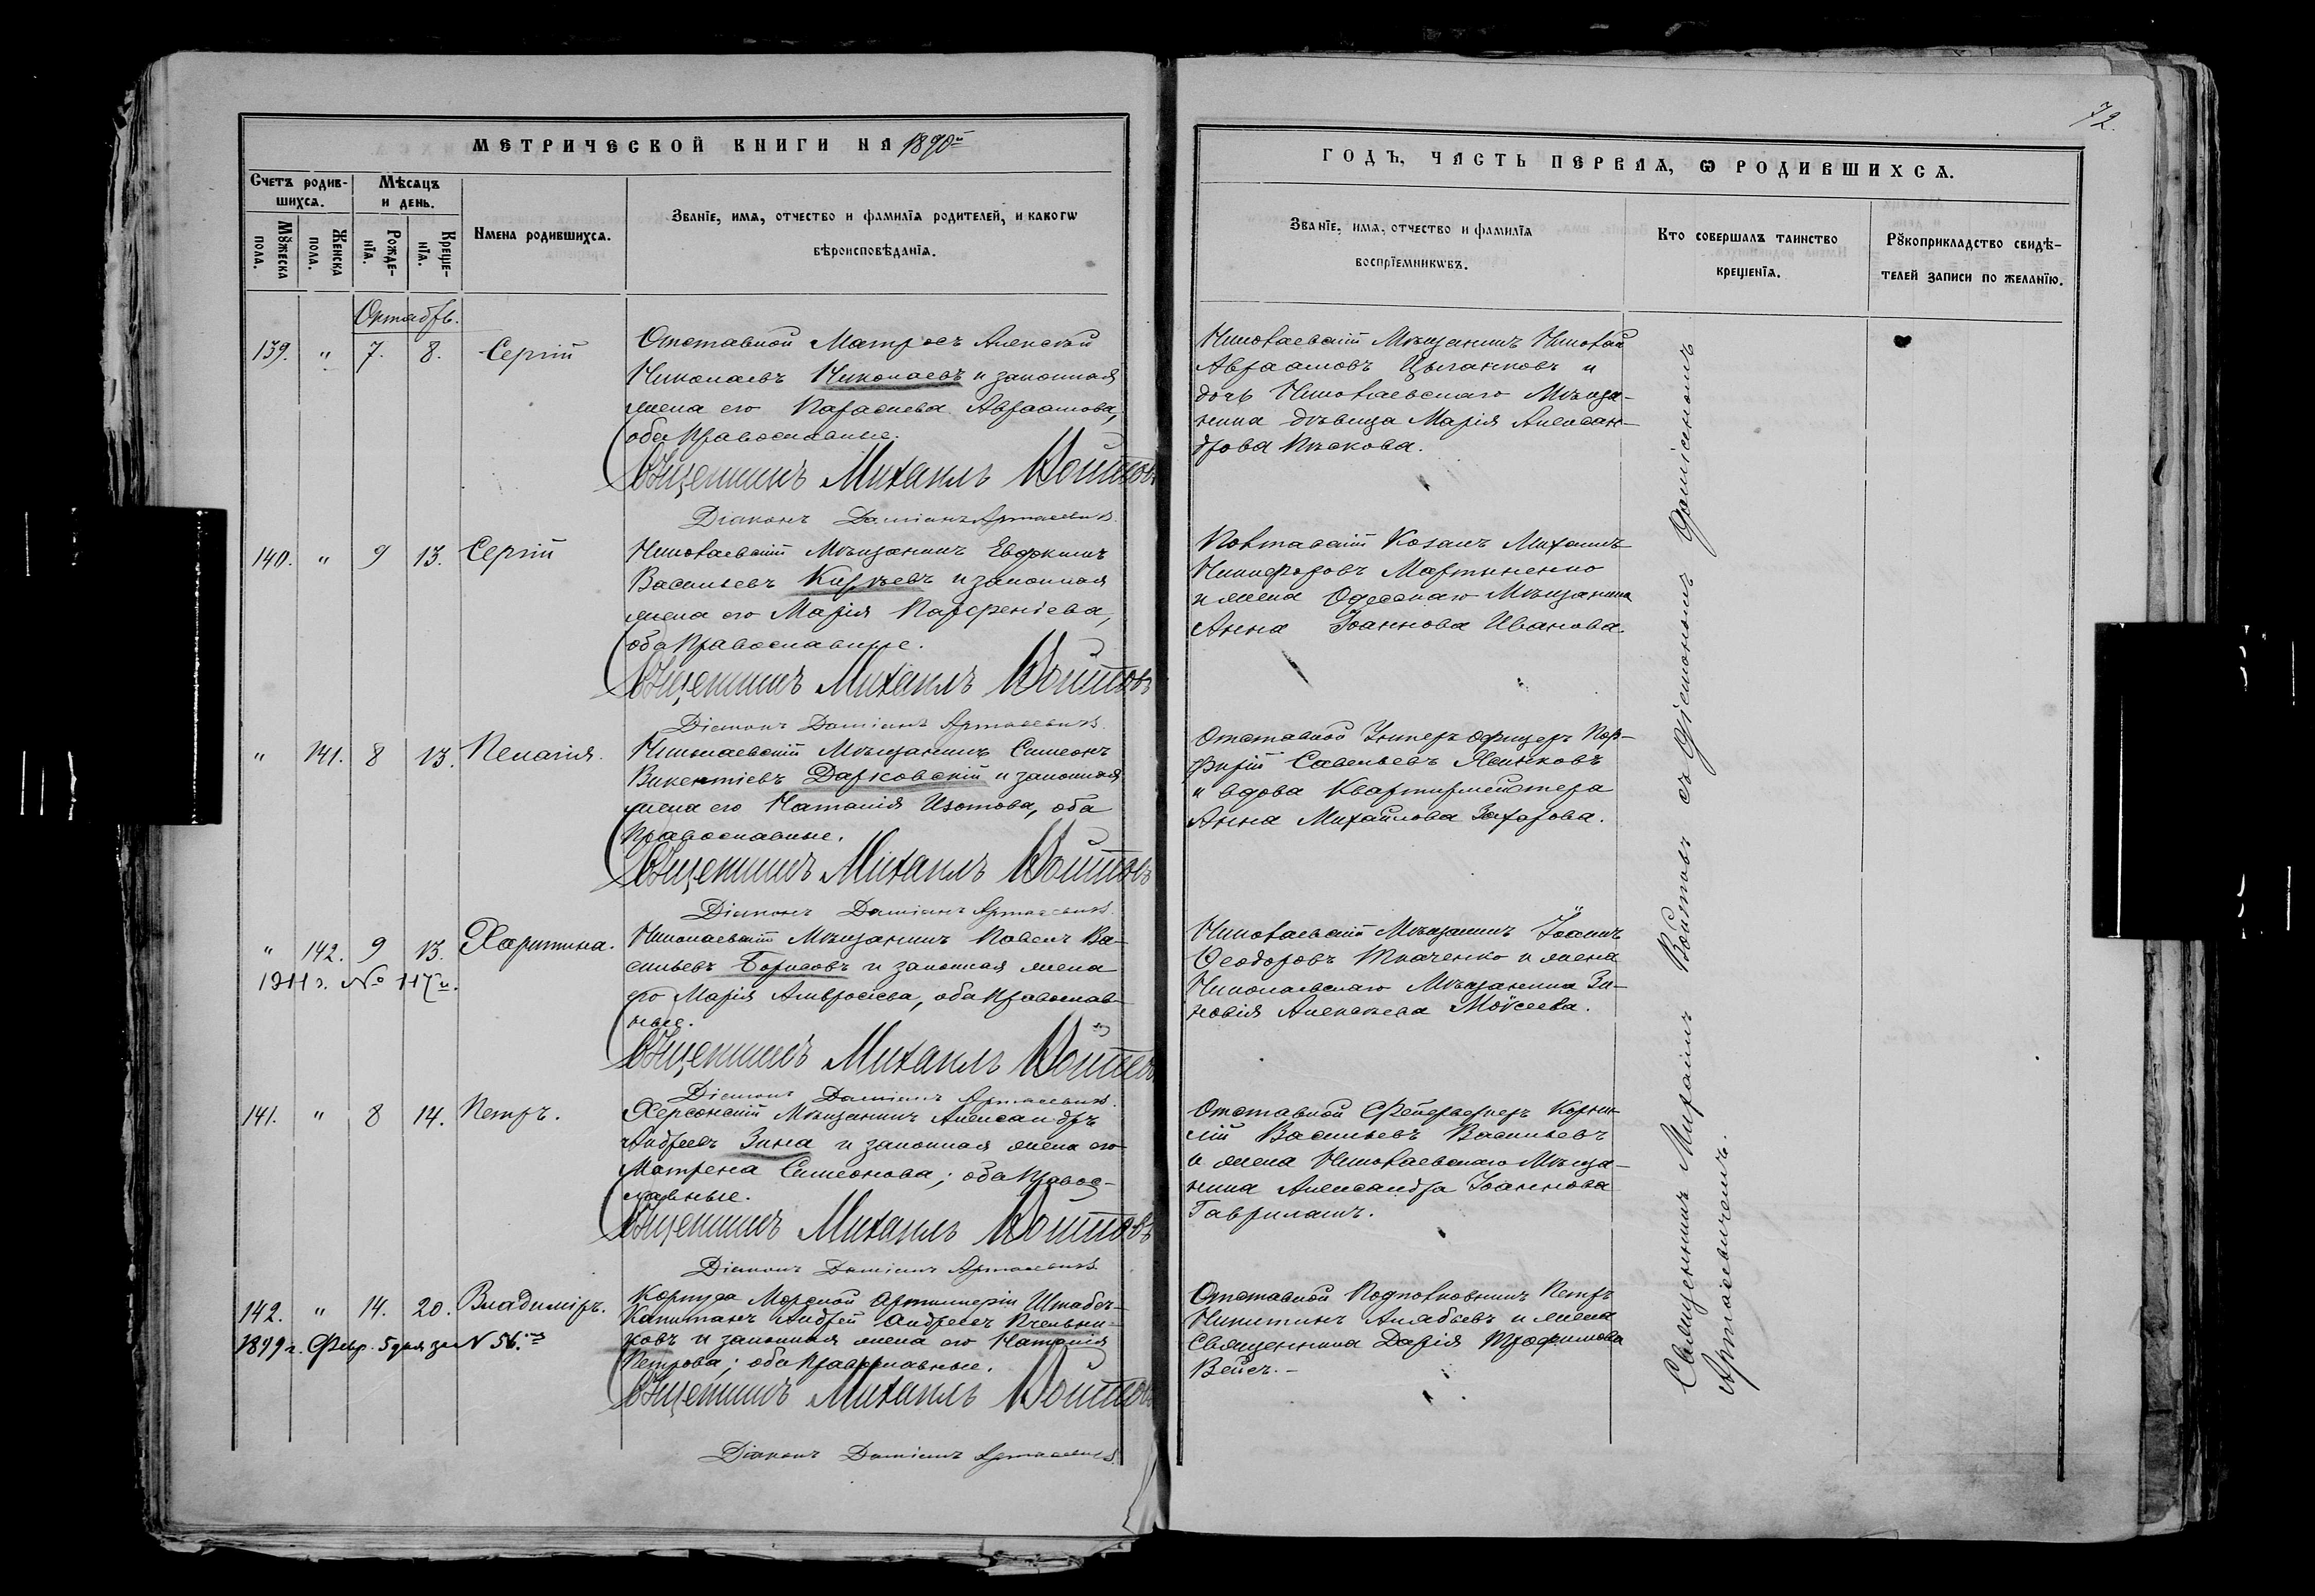 МЕТРИЧЕСКОЙ КНИГИ НА 1890й
Счетъ родив-
шихся.
Мѣсяцъ
и день.
Мꙋжеска
пола.
Женска
пола.
Рожде-
нїя.
Креще-
нїя.
Имена родившихся.
Званїе, имя, отчество и фамилїя родителей, и какогѡ
вѣроисповѣданїя.
Октябрь.
139. " 7. 8. Сергій
Отставной Матросъ Алексѣй
Николаевъ Николаевъ и законная
жена его Параскева Авраамова,
оба православные.
Священникъ Михаилъ Войтовъ
Діаконъ Даміанъ Артасевичъ
140. " 9 13. Сергій
Николаевскій Мѣщанинъ Евдокимъ
Васильевъ Кирѣевъ и законная
жена его Марія Парфеніева,
оба православные.
Священникъ Михаилъ Войтовъ
Діаконъ Даміанъ Артасевичъ
" 141. 8 13. Пелагія.
Николаевскій Мѣщанинъ Симеонъ
Викентіевъ Дарковскій и законная
жена его Наталія Изотова, оба
православные.
Священникъ Михаилъ Войтовъ
Діаконъ Даміанъ Артасевичъ
" 142. 9 13. Харитина.
1911 г. № 117й.
Николаевскій Мѣщанинъ Павелъ Ва-
сильевъ Борисовъ и законная жена
его Марія Амвросіева, оба православ-
ные.
Священникъ Михаилъ Войтовъ
Діаконъ Даміанъ Артасевичъ
141. " 8 14. Петръ.
Херсонскій Мѣщанинъ Александръ
Андреевъ Зина и законная жена его
Матрена Симеонова; оба правос-
лавные.
Священникъ Михаилъ Войтовъ
Діаконъ Даміанъ Артасевичъ
142. " 14. 20. Владиміръ.
1899 г. Февр. 5 дня за N 56.
Корпуса Морской Артиллеріи Штабсъ-
Капитанъ Андрей Андреевъ Пчельни-
ковъ и законная жена его Наталія
Петрова; оба православные.
Священникъ Михаилъ Войтовъ
Діаконъ Даміанъ Артасевичъ
72.
ГОДЪ, ЧАСТЬ ПЕРВАЯ, Ѡ РОДИВШИХСЯ.
Званїе, имя, отчество и фамилїя
воспрїемникѡвъ.
Кто совершалъ таинство
крещенїя.
Рꙋкоприкладство свидѣ-
телей записи по желанїю.
Николаевскій Мѣщанинъ Николай
Авраамовъ Цыганковъ и
дочь Николаевскаго Мѣща-
нина дѣвица Марія Алексан-
дрова Пѣскова.
Полтавскій Козакъ Михаилъ
Никифоровъ Мартыненко
и жена Одесскаго Мѣщанина
Анна Іоаннова Иванова.
Отставной Унтеръ офицеръ Пор-
фирій Савельевъ
и вдова Квартирмейстера
Анна Михайлова Захарова.
Николаевскій Мѣщанинъ Іоаннъ
Ѳеодоровъ Ткаченко и жена
Николаевскаго Мѣщанина Зи-
новія Алексѣева Моѵсеева.
Отставной Фейерверкеръ Корни-
лій Васильевъ Васильевъ
и жена Николаевскаго Мѣща-
нина Александра Іоаннова
Гаврилашъ.
Отставной Подполковникъ Петръ
Никитинъ Алябьевъ и жена
Священника Дарія Трофимова
Вейсъ.-
Священникъ Михаилъ Войтовъ съ Діакономъ Даміаномъ
Артасевичемъ.